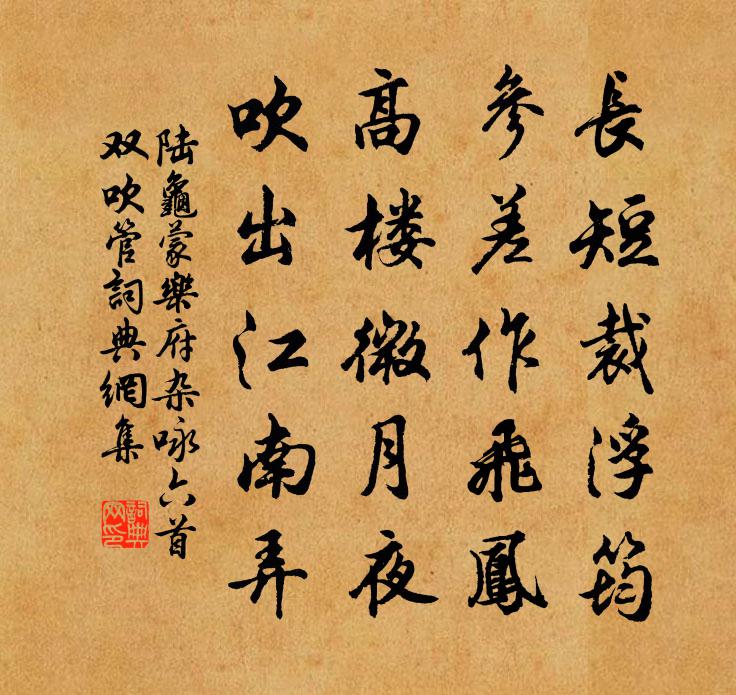 長短裁浮筠
參差作飛鳳
高楼微月夜
吹出江南弄
陆龜蒙樂府杂咏六首
双吹管詞典網集
詞典网印